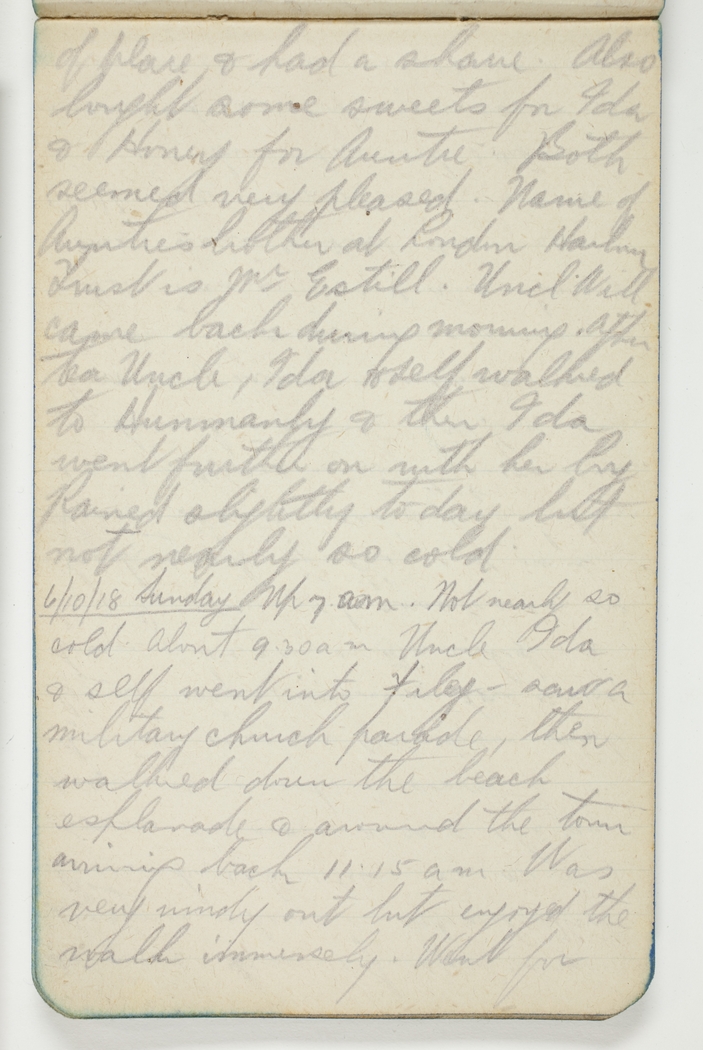 of place & had a shave. Also
bought some sweets for Ida
& Honey for Auntie. Both
seemed very pleased. Name of
Aunties brother at London Harbour
Trust is Mr Estill. Uncle Will
came back during morning. After
tea Uncle, Ida & self walked
to Hunmanby & then Ida
went further on with her boy
Rained slightly today but
not nearly so cold
6/10/18 Sunday Up 7 am. Not nearly so
cold about 9.30 am Uncle Ida
& self went into Filey - saw a
military church parade, then
walked down the beach
esplanade & around the town
arriving back 11.15 am Was
very windy out but enjoyed the
walk immensely. Went for